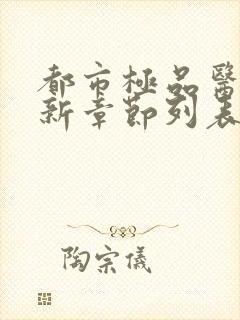 都市極品醫
新章節列表
陶宗儀